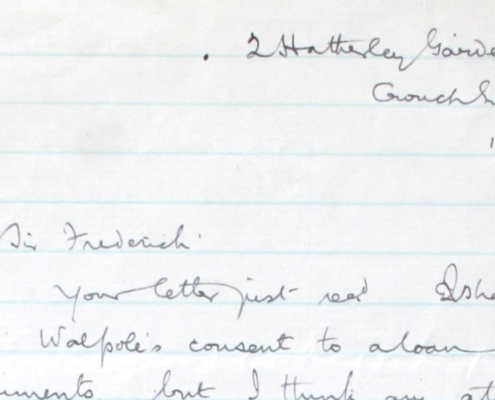 2 Hatherley Garde
Crouch E
Sir Frederick
Your letter just recd I sha
Walpole's consent to a loan
uments but I think any at